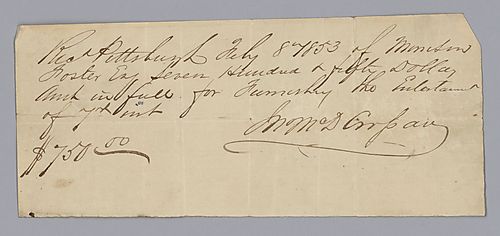 Recd Pittsburgh Feby 8th 1853 of Morrison
Foster Esq Seven Hundred & fifty Dollars
Amt in full for Furnishing the Entertainmt
of 7th inst
Jno McD Crossan
$750 00